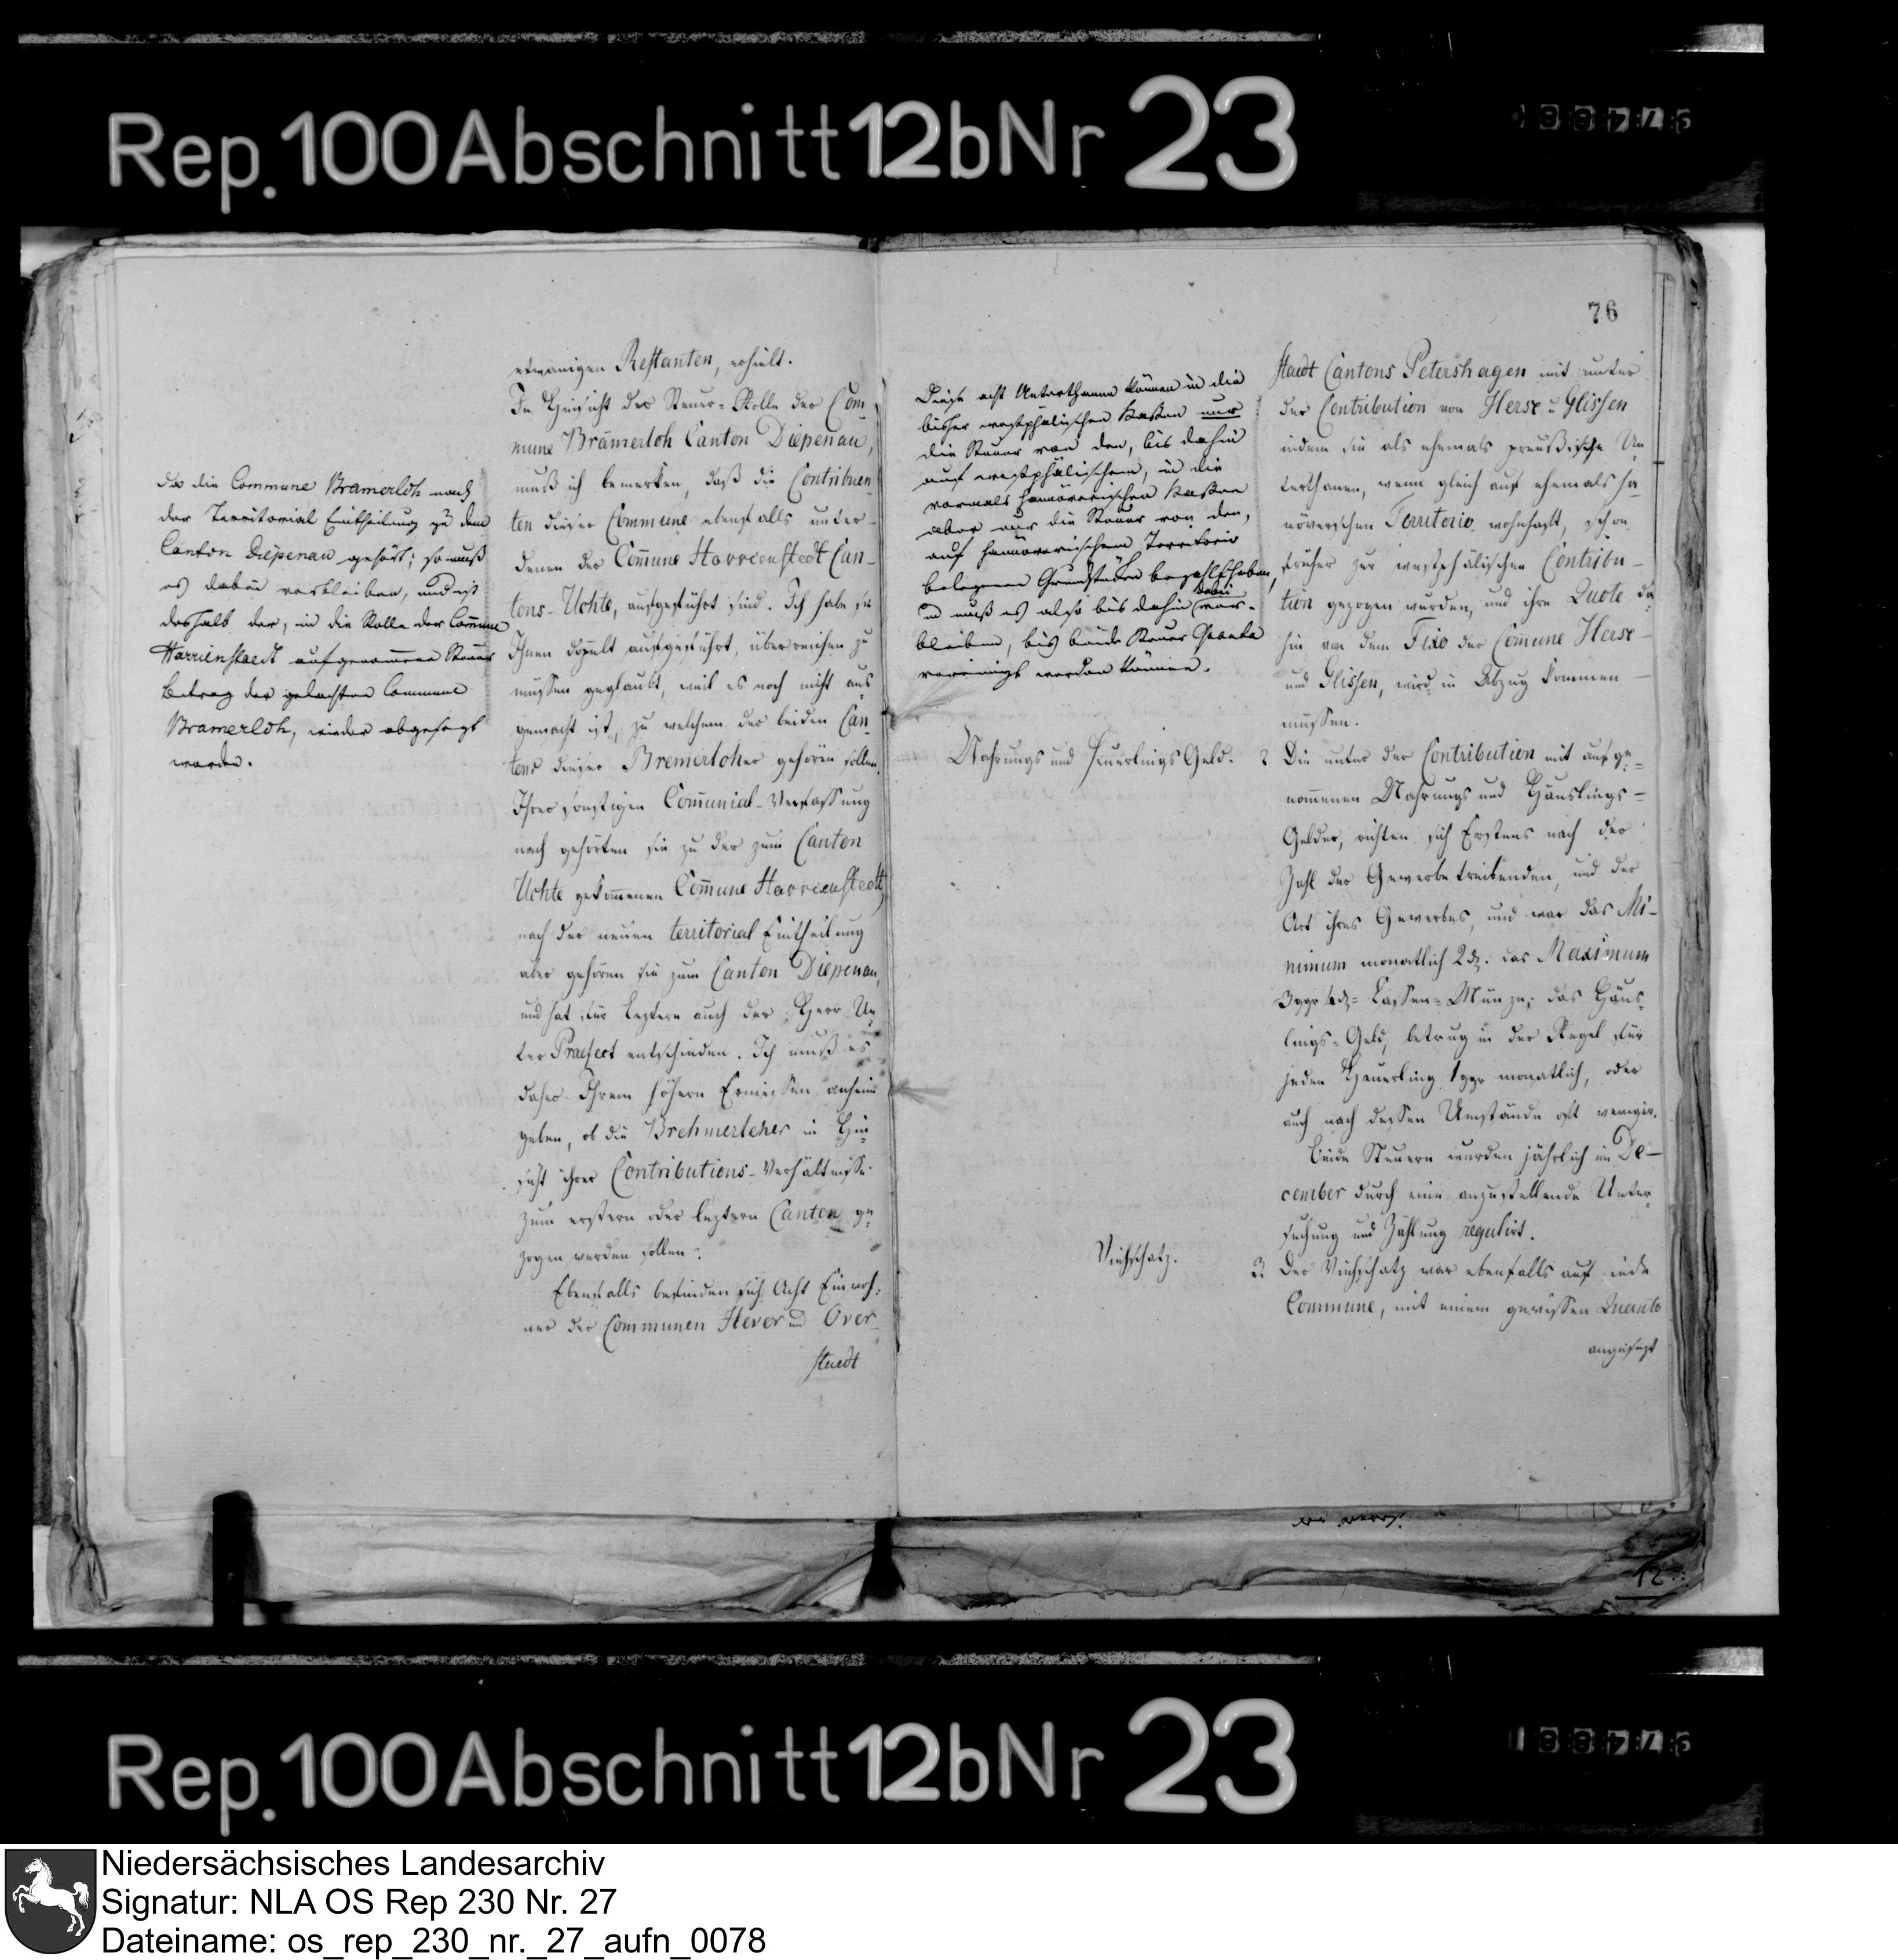 Rep. 100 Abschnitt 12b Nr 23
Da die Commune Bramerloh nach
der Territorial Eintheilung zu dem
Canton Diepenau gehört; so muß
es dabei verbleiben, und ist
deshalb der, in die Rolle der Com̄une
Harrienstaedt aufgenommene Steuer
Betrag der gedachten Commune
Bramerloh, wieder abgesetzt
worden.
etwanigen Restanten, erhielt.
In Hinsicht der Steuer-Rolle der Com
mune Brämerloh Canton Diepenau,
muß ich bemerken, daß die Contribuen
ten dieser Commune ebenfalls unter
denen der Com̄une Harrienstedt Can-
tons-Uchte, aufgeführt sind. Ich habe sie
Ihnen doppelt aufgeführt, überreichen zu
müssen geglaubt, weil es noch nicht aus
gemacht ist, zu welchem der beiden Can
tons dieser Bremerloher gehören sollen.
Ihrer sonstigen Com̄unial-Verfassung
nach gehörten sie zu der zum Canton
Uchte gekom̄enen Com̄une Harrienstedt,
nach der neuen territorial Eintheilung
aber gehören sie zum Canton Diepenau,
und hat für leztern auch der Herr Un
ter Praefect entschieden. Ich muß es
daher Ihrem höhern Ermessen anheim
geben, ob die Brehmerleher in Hin
sicht ihrer Contributions-Verhältnisse
zum erstern oder leztern Canton ge
zogen werden sollen?
Ebenfalls befinden sich Acht Einwoh-
ner der Communen Hever und Over-
staedt
76
Diese acht Unterthanen können in die
bisher westphälischen Kassen nur
die Steuer von den, bis dahin
auf westphälischem, in die
vormals hannöverischen Kassen
aber nur die Steuer von den,
auf hannöverischem Territorio
belegenen Grundstücken bezahlt haben,
dabei
und muß es also bis dahin ver-
bleiben, bis beide Steuer Quanta
vereinigt werden können.
staedt Cantons Petershagen mit unter
der Contribution von Herse u Glissen
indem sie als ehemals preußische Un
terthanen, wenn gleich auf ehemals ha
növerschen Territorio wohnhaft, schon
früher zur westphälischen Contribu-
tion gezogen wurden, und ihre Quote da
hin von dem Fixo der Com̄une Herse
und Glissen, wird in Abzug kommen
müssen.
Nahrungs und Heuerlings Geld.
2 Die unter der Contribution mit aufge-
nom̄enen Nahrungs und Häuslings-
Gelder, richten sich Erstens nach der
Zahl der Gewerbetreibenden, und der
Art ihres Gewerbes, und war das Mi-
nimum monatlich 2 d. das Maximum
3 ggr 4 d = Cassen-Münze; das Häus-
lings-Geld, betrug in der Regel für
jeden Heuerling 1 ggr monatlich, oder
auch nach dessen Umstände oft weniger.
Beide Steuern wurden jährlich im De-
cember durch eine anzustellende Unter
suchung und Zählung regulirt.
Viehschatz.
3. Der Viehschatz war ebenfalls auf jede
Commune, mit einem gewissen Quanto
angesezt
12
Rep. 100 Abschnitt 12b Nr 23
Niedersächsisches Landesarchiv
Signatur: NLA OS Rep 230 Nr. 27
Dateiname: os_rep_230_nr._27_aufn_0078